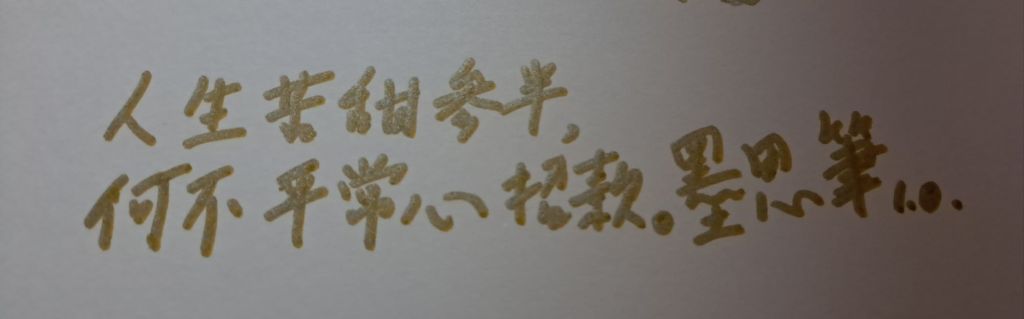 人生苦甜參半,
何不平常心招款。墨思筆1.0.